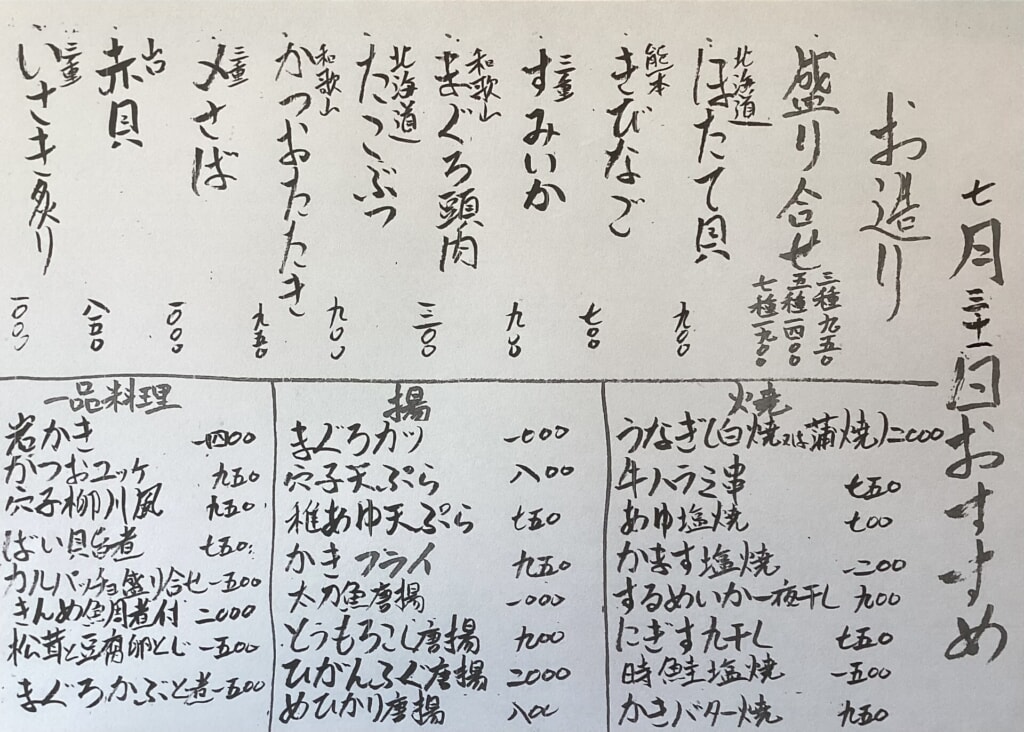 七月三十一日おすすめ
お造り
盛り合せ
三種九五〇
五種一四〇〇
七種一九〇〇
北海道
ほたて貝 九〇〇
熊本
きびなご 七〇〇
三重
すみいか 九〇〇
和歌山
まぐろ頭肉
北海道
たこぶつ 九〇〇
和歌山
かつおたたき 九五〇
三重
〆さば 一〇〇〇
山口
赤貝
三重
いさき炙り 一〇〇〇
焼
うなぎ(白焼又は蒲焼)二〇〇〇
牛ハラミ串 七五〇
あゆ塩焼 七〇〇
かます塩焼 一二〇〇
するめいか一夜干し 九〇〇
にぎす丸干し 七五〇
時鮭塩焼 一五〇〇
かきバター焼 九五〇
揚
まぐろカツ 一七〇〇
穴子天ぷら 八〇〇
稚あゆ天ぷら 七五〇
かきフライ 九五〇
太刀魚唐揚 一〇〇〇
とうもろこし唐揚 九〇〇
ひがんふぐ唐揚 二〇〇〇
めひかり唐揚 八〇〇
一品料理
岩かき 一四〇〇
かつおユッケ 九五〇
穴子柳川風 九五〇
ばい貝旨煮 七五〇
カルパッチョ盛り合せ 一五〇〇
きんめ魚周煮付 二〇〇〇
松茸と豆腐卵とじ 一五〇〇
まぐろかぶと煮 一五〇〇